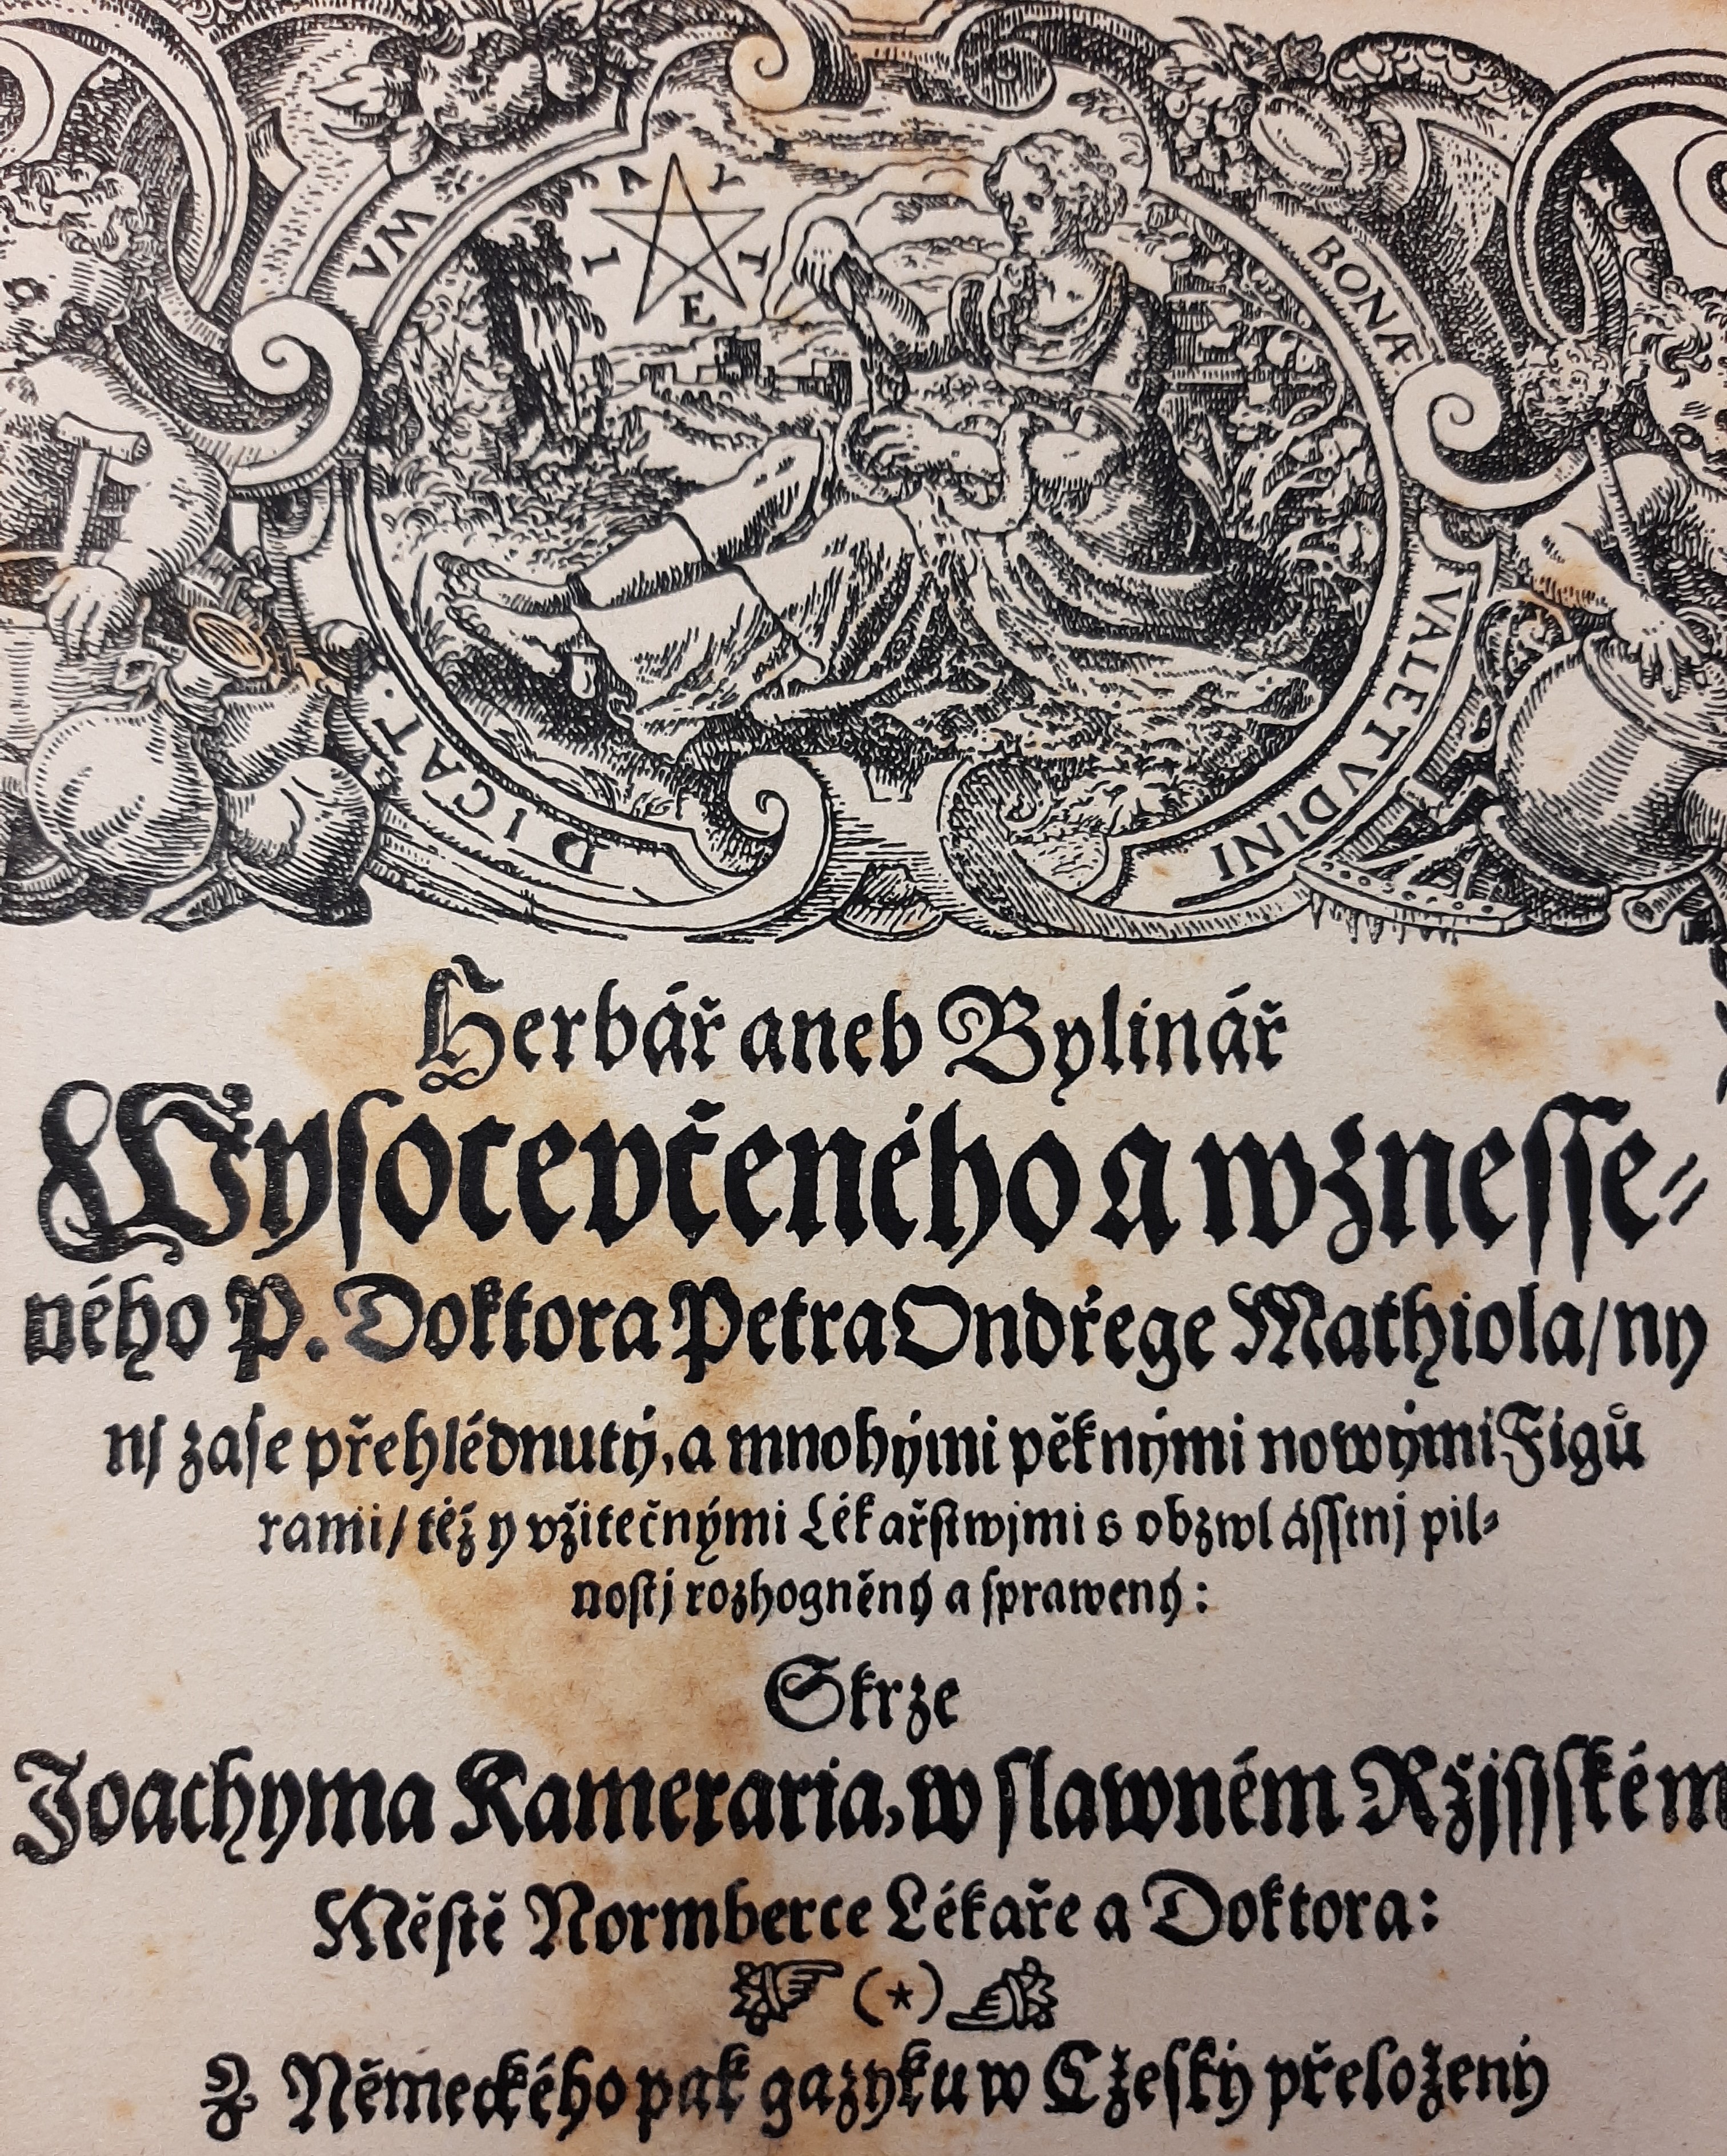 VM
BONÆ
VALETVDINI
DICAT.
Y
T
E
I
A
Herbář aneb Bylinář
Wysocevčeného a wznesſe⸗
ného P. Doktora Petra Ondřege Mathiola/ ny
nj zaſe přehlédnutý, a mnohými pěknými nowými Figů
rami/ též y vžitečnými Lékařſtwjmi s obzwláſſtnj pil⸗
noſtj rozhogněný a ſprawený:
Skrze
Joachyma Kameraria, w ſlawném Ržjſſkém
Měſtě Normberce Lékaře a Doktora:
☞ (*) ☜
Z Německého pak gazyku w Czeſký přeložený